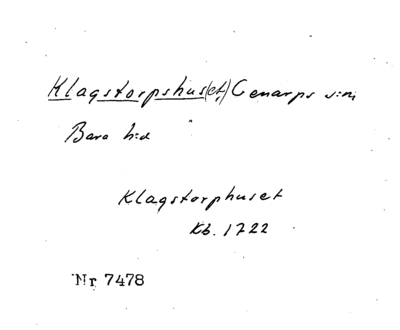 Klagstorpshus(et,) Genarps s:n,
Bara h:d
Klagstorphuset
Kb. 1722
Nr 7478